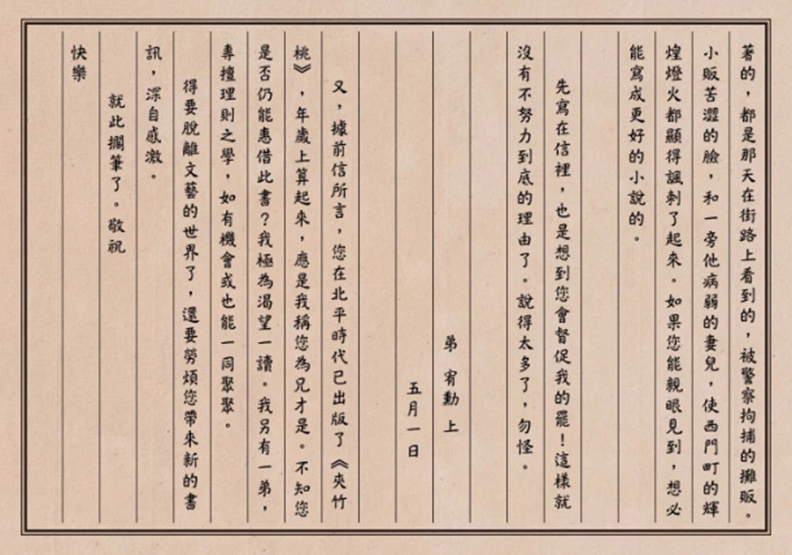 著的，都是那天在街路上看到的，被警察拘捕的攤販。
小販苦澀的臉，和一旁他病弱的妻兒，使西門町的輝
煌燈火都顯得諷刺了起來。如果您能親眼見到，想必
能寫成更好的小說的。
先寫在信裡，也是想到您會督促我的罷！這樣就
沒有不努力到底的理由了。說得太多了，勿怪。
弟 宥勳 上
五月一日
又，據前信所言，您在北平時代已出版了《夾竹
桃》，年歲上算起來，應是我稱您為兄才是。不知您
是否仍能惠借此書？我極為渴望一讀。我另有一弟，
專擅理則之學，如有機會或也能一同聚聚。
得要脫離文藝的世界了，還要勞煩您帶來新的書
訊，深自感激。
就此擱筆了。敬祝
快樂